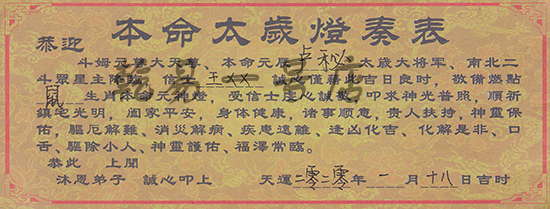 本命太歲燈奏表
恭迎
斗姆元尊大天尊、本命元辰卢秘太歲大將軍、南北二
斗眾星主降臨，信士王xx誠心僅藉此吉日良時，敬備燃點
鼠生肖本命元神燈，受信士虔心誠敬，叩求神光普照，順祈
鎮宅光明，闔家平安，身體健康，諸事順意，貴人扶持，神靈保
佑，驅厄解難、消災解病、疾患遠離、逢凶化吉、化解是非、口
舌、驅除小人、神靈護佑、福澤常臨。
恭此 上聞
沐恩弟子 誠心叩上 天運二零二零年一月十八日吉時